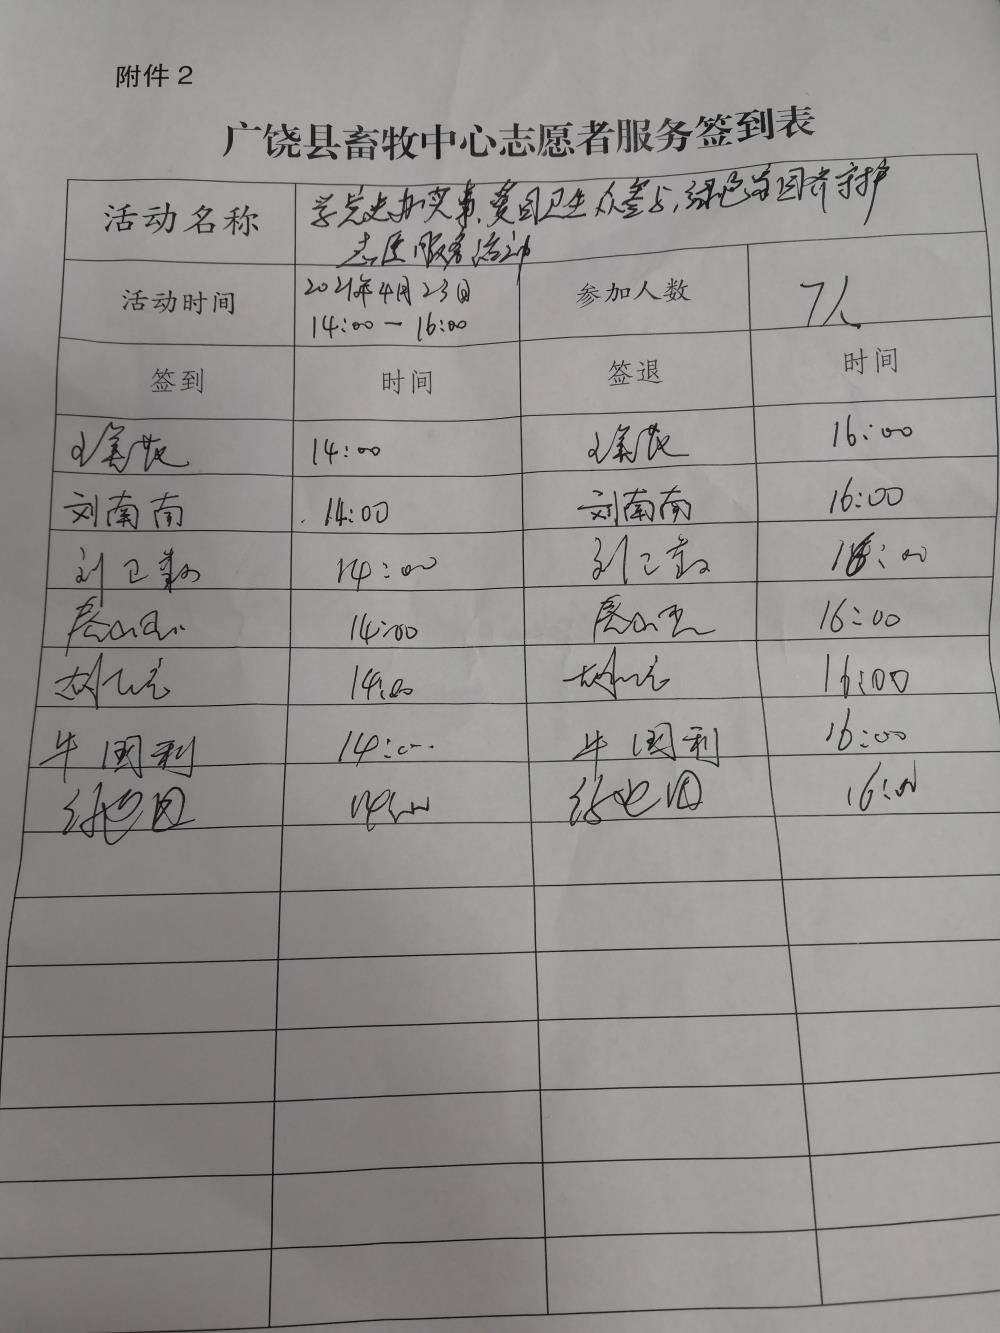 附件 2
广饶县畜牧中心志愿者服务签到表
活动名称 学党史办实事、爱国卫生众参与,绿色家园齐守护
志愿服务活动
活动时间 2021年4月23日 14:00—16:00 参加人数 7人
签到 时间 签退 时间
14:00 16:00
刘南南 14:00 刘南南 16:00
刘卫 14:00 刘卫 16:00
14:00 16:00
14:00 16:00
牛国利 14:00 牛国利 16:00
14:00 16:00